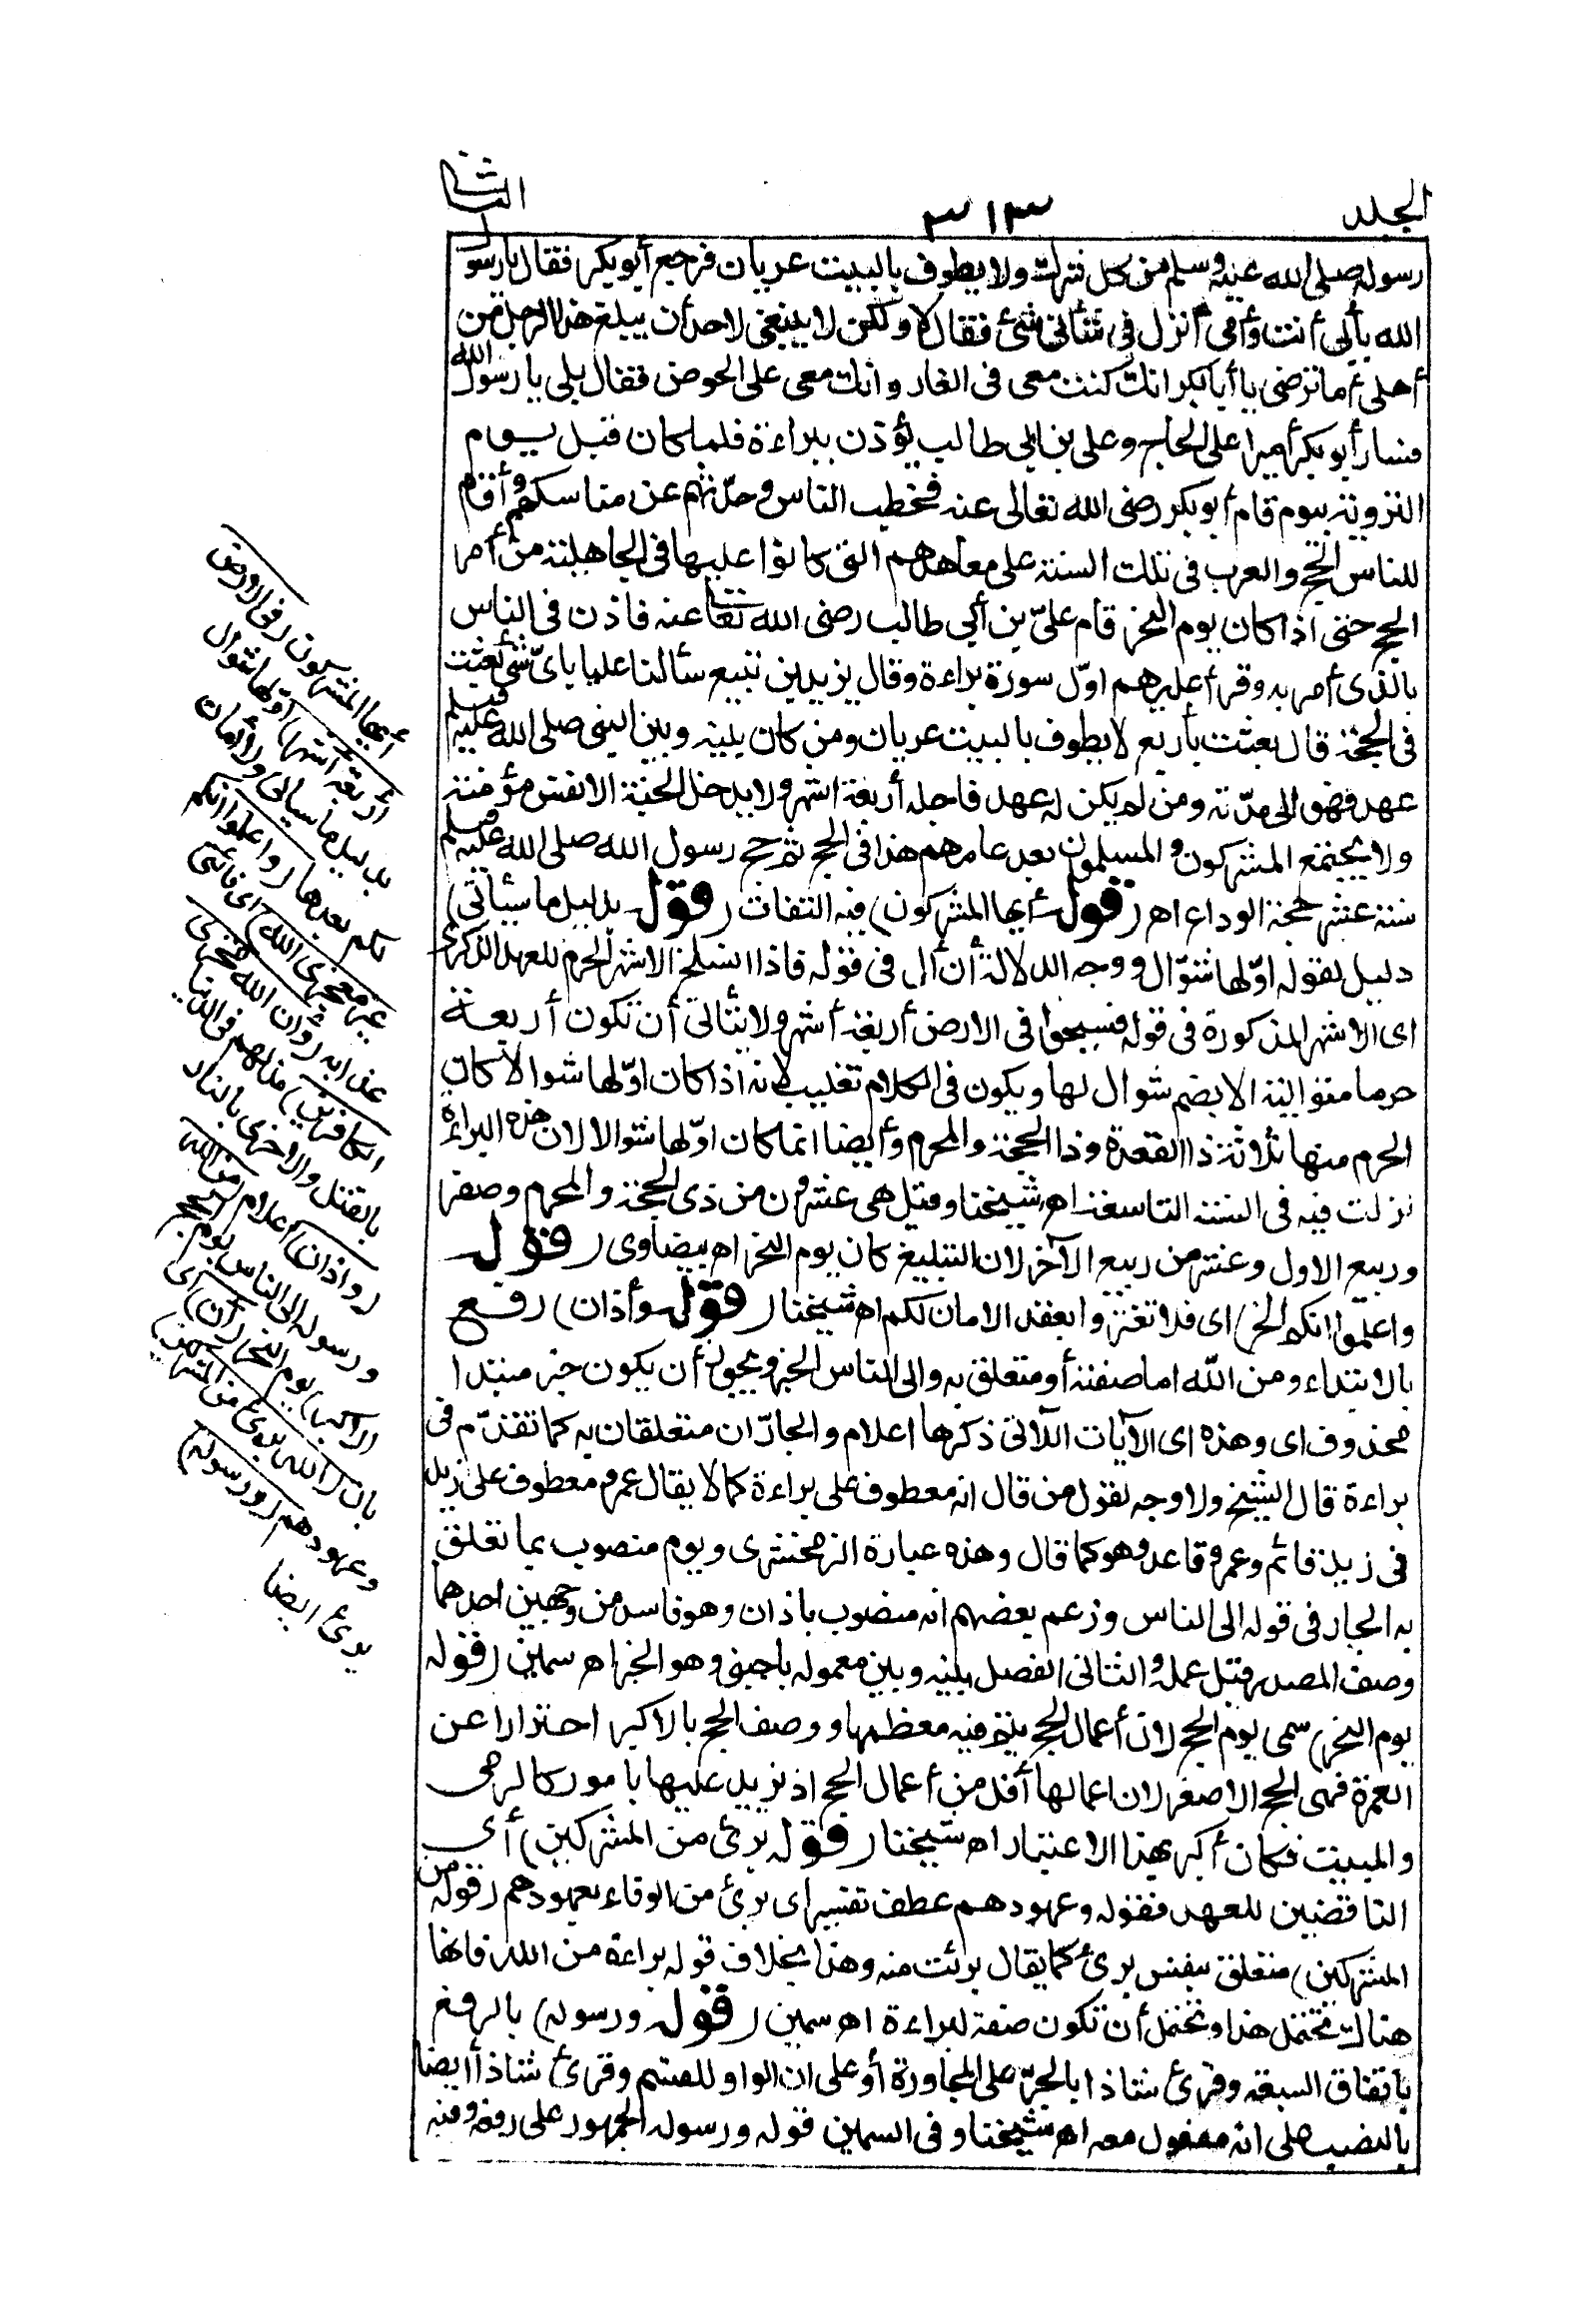 الجلد
٣١٣
الثانى
رسوله صلى الله عليه وسلم من كل مشرك ولا يطوف بالبيت عريان فرجع أبو بكر فقال يا رسول
الله بأبى أنت وأمى أنزل فى شأنى شئ فقال لا ولكن لا ينبغى لاحد أن يبلغ هذا الا رجل من
أهلى أما ترضى يا أبا بكر انك كنت معى فى الغار وانك معى على الحوض فقال بلى يا رسول الله
فسار أبو بكر أميرا على الحاج وعلى بن ابى طالب يؤذن ببراءة فلما كان قبل يوم
التروية بيوم قام أبو بكر رضى الله تعالى عنه فخطب الناس وحدّثهم عن مناسكهم وأقام
للناس الحج والعرب فى تلك السنة على معاهدهم التى كانوا عليها فى الجاهلية من أمر
الحج حتى اذا كان يوم النحر قام علىّ بن أبي طالب رضى الله تعا عنه فاذن فى الناس
بالذى أمر به وقرأ عليهم اوّل سورة براءة وقال يزيد بن تبيع سألنا عليا باىّ شئ بعثت
فى الحجة قال بعثت بأربع لا يطوف بالبيت عريان ومن كان بينه وبين النبى صلى الله عليه وسلم
عهد فهو الى مدّته ومن لم يكن له عهد فاجله أربعة اشهر ولا يدخل الجنة الا نفس مؤمنة
ولا يجتمع المشركون والمسلمون بعد عامهم هذا فى الحج ثم حج رسول الله صلى الله عليه وسلم
سنة عشر حجة الوداع اهـ (قوله أيها المشركون) فيه التفات (قوله بدليل ما سيأتى)
دليل لقوله اوّلها شوّال ووجه الدلالة أن أل فى قوله فاذا انسلخ الاشهر الحرم للعهد الذكرى
اى الاشهر المذكورة فى قوله فسيحوا فى الارض أربعة أشهر ولا يتأتى أن تكون أربعة
حرما متوالية الا بضم شوال لها ويكون فى الكلام تغليب لانه اذا كان اوّلها شوالا كان
الحرم منها ثلاثة ذا القعدة وذا الحجة والمحرم وأيضا انما كان اوّلها شوالا لان هذه البراءة
نزلت فيه فى السنة التاسعة اهـ شيخنا وقيل هى عشرون من ذى الحجة والمحرم وصفر
وربيع الاول وعشر من ربيع الآخر لان التبليغ كان يوم النحر اهـ بيضاوى (قوله
واعلموا انكم الخ) اى فلا تغتروا بعقد الامان لكم اهـ شيخنا (قوله وأذان) رفع
بالابتداء ومن الله اما صفته أو متعلق به والى الناس الخبر ويجوز أن يكون خبر مبتدا
محذوف اى وهذه اى الآيات الآتى ذكرها اعلام والجارّان متعلقان به كما تقدّم فى
براءة قال الشيخ ولا وجه لقول من قال انه معطوف على براءة كما لا يقال عمرو معطوف على زيد
فى زيد قائم وعمرو قاعد وهو كما قال وهذه عبارة الزمخشرى ويوم منصوب بما تعلق
به الجار فى قوله الى الناس وزعم بعضهم انه منصوب باذان وهو فاسد من وجهين احدهما
وصف المصدر قبل عمله والثانى الفصل بينه وبين معموله باجنبى وهو الخبر اهـ سمين (قوله
يوم النحر) سمى يوم الحج لان أعمال الحج يتم فيه معظمها ووصف الحج بالاكبر احترازا عن
العمرة فهى الحج الاصغر لان اعمالها أقل من أعمال الحج اذ يزيد عليها بامور كالرمى
والمبيت فكان أكبر بهذا الاعتبار اهـ شيخنا (قوله برئ من المشركين) أى
الناقضين للعهد فقوله وعهودهم عطف تفسير اى برئ من الوفاء بعهودهم (قوله من
المشركين) متعلق بنفس برئ كما يقال برئت منه وهذا بخلاف قوله براءة من الله فانها
هناك تحتمل هذا وتحتمل أن تكون صفة لبراءة اهـ سمين (قوله ورسوله) بالرفع
باتفاق السبعة وقرئ شاذا بالجرّ على المجاورة أو على ان الواو للقسم وقرئ شاذا أيضا
بالنصب على انه مفعول معه اهـ شيخنا وفى السمين قوله ورسوله الجمهور على رفعه وفيه
أيها المشركون (فى الارض
أربعة أشهر) اوّلها شوال
بدليل ما سيأتى ولا أمان
لكم بعدها (واعلموا انكم
غير معجزى الله) اى فائتى
عذابه (وأن الله مخزى
الكافرين) مذلهم فى الدنيا
بالقتل والاخرى بالنار
(واذان) اعلام (من الله
ورسوله الى الناس يوم الحج
الاكبر) يوم النحر (أن) اى
بان (الله برئ من المشركين)
وعهودهم (ورسوله)
برئ ايضا